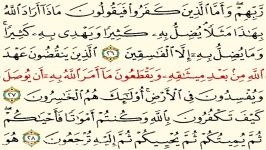 رَّبِّهِمْ ۖ وَأَمَّا الَّذِينَ كَفَرُوا فَيَقُولُونَ مَاذَا أَرَادَ اللَّهُ
بِهَٰذَا مَثَلًا ۘ يُضِلُّ بِهِ كَثِيرًا وَيَهْدِي بِهِ كَثِيرًا ۚ
وَمَا يُضِلُّ بِهِ إِلَّا الْفَاسِقِينَ ٢٦ الَّذِينَ يَنقُضُونَ عَهْدَ
اللَّهِ مِن بَعْدِ مِيثَاقِهِ وَيَقْطَعُونَ مَا أَمَرَ اللَّهُ بِهِ أَن يُوصَلَ
وَيُفْسِدُونَ فِي الْأَرْضِ ۚ أُولَٰئِكَ هُمُ الْخَاسِرُونَ ٢٧
كَيْفَ تَكْفُرُونَ بِاللَّهِ وَكُنتُمْ أَمْوَاتًا فَأَحْيَاكُمْ ۖ
ثُمَّ يُمِيتُكُمْ ثُمَّ يُحْيِيكُمْ ثُمَّ إِلَيْهِ تُرْجَعُونَ ٢٨ هُوَ